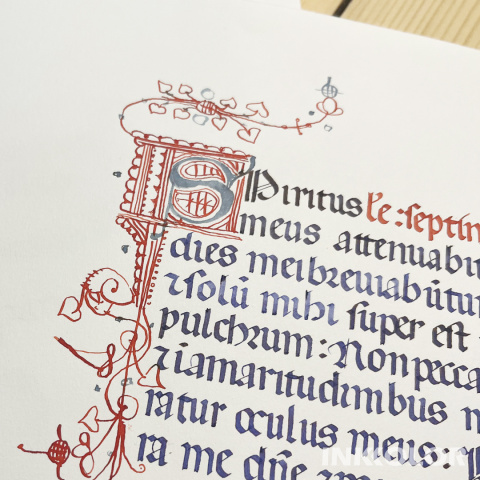 SPiritus Le :septin
meus attenuabit
dies mei breviabūtur
⁊ solū mihi super est
pulchrum: Non pecca
⁊ in amaritudinibus m
ratur oculus meus:
ra me dn̄e
INKCOLOR